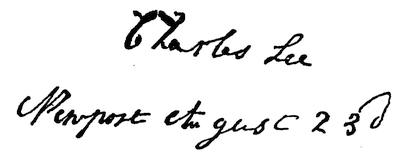 Charles Lee
Newport August 23d